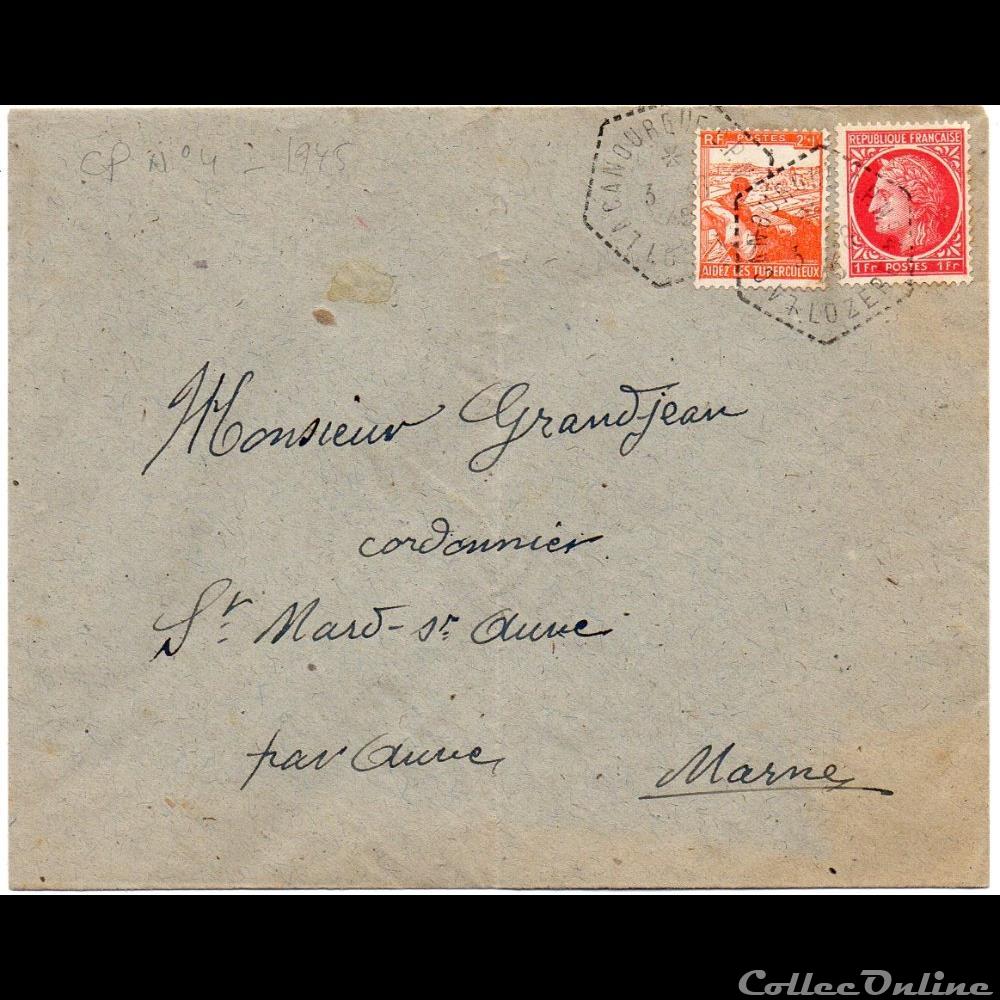 CP N° 4 - 1945
LA CANOURGUE
3
LOZERE
RF POSTES 2+1
AIDEZ LES TUBERCULEUX
REPUBLIQUE FRANÇAISE
1Fr POSTES 1Fr
Monsieur Grandjean
cordonnier
St. Mard-sr Auve
par Auve
Marne
ColleeOnline